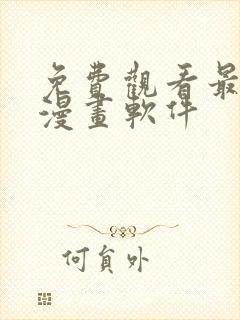 免費觀看最
漫畫軟件
何負外